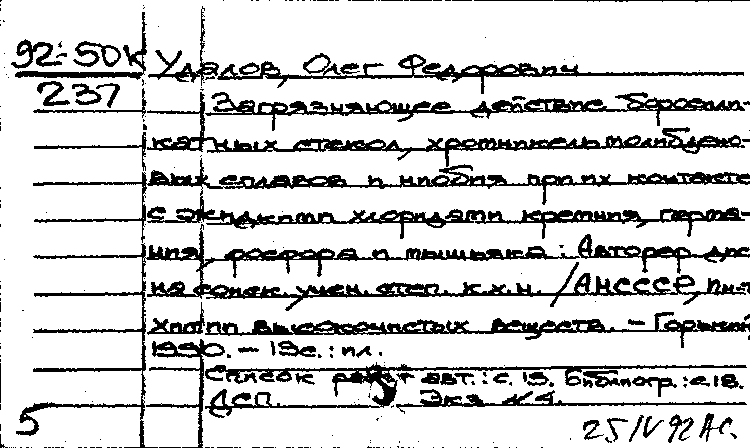 92-50К Удалов, Олег Федорович
237
Загрязняющее действие боросили-
катных стекол, хромникельмолибдено-
вых сплавов и ниобия при их контакте
с жидкими хлоридами кремния, герма-
ния, фосфора и мышьяка: Автореф. дис.
на соиск. учен. степ. к.х.н. / АН СССР, Ин-т
химии высокочистых веществ. - Горький,
1990. - 19с.: ил.
Список работ авт.: с. 15. Библиогр.: с.18.
ДСП. Экз №4.
5
25/IV 92 АС